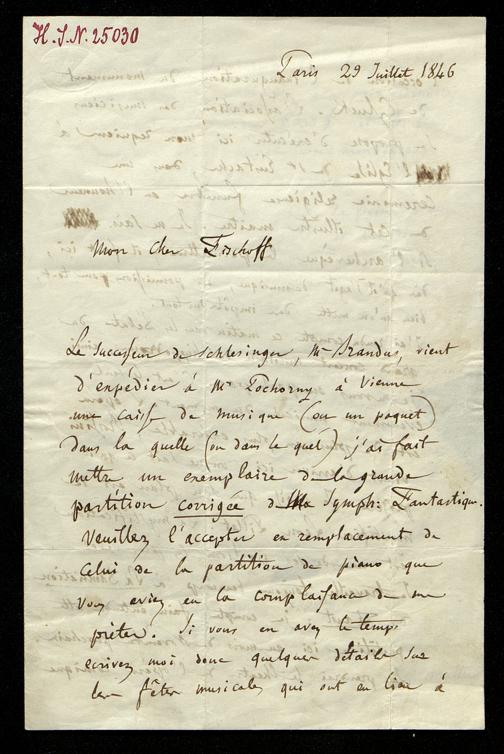 H. I. N. 25030
Paris 29 Juillet 1846
Mon cher Fischoff
Le Successeur de Schlesinger, Mr Brandus, vient
d'expédier à Mr Tochorny à Vienne
une caisse de musique (ou un paquet)
dans la quelle (ou dans le quel) j'ai fait
mettre un exemplaire de la grande
partition corrigée de Ma Symph: Fantastique.
Veuillez l'accepter en remplacement de
celui de la partition de piano que
vous aviez eu la complaisance de me
prêter. Si vous en avez le temps
ecrivez moi donc quelques détails sur
les fêtes musicales qui ont eu lieu à